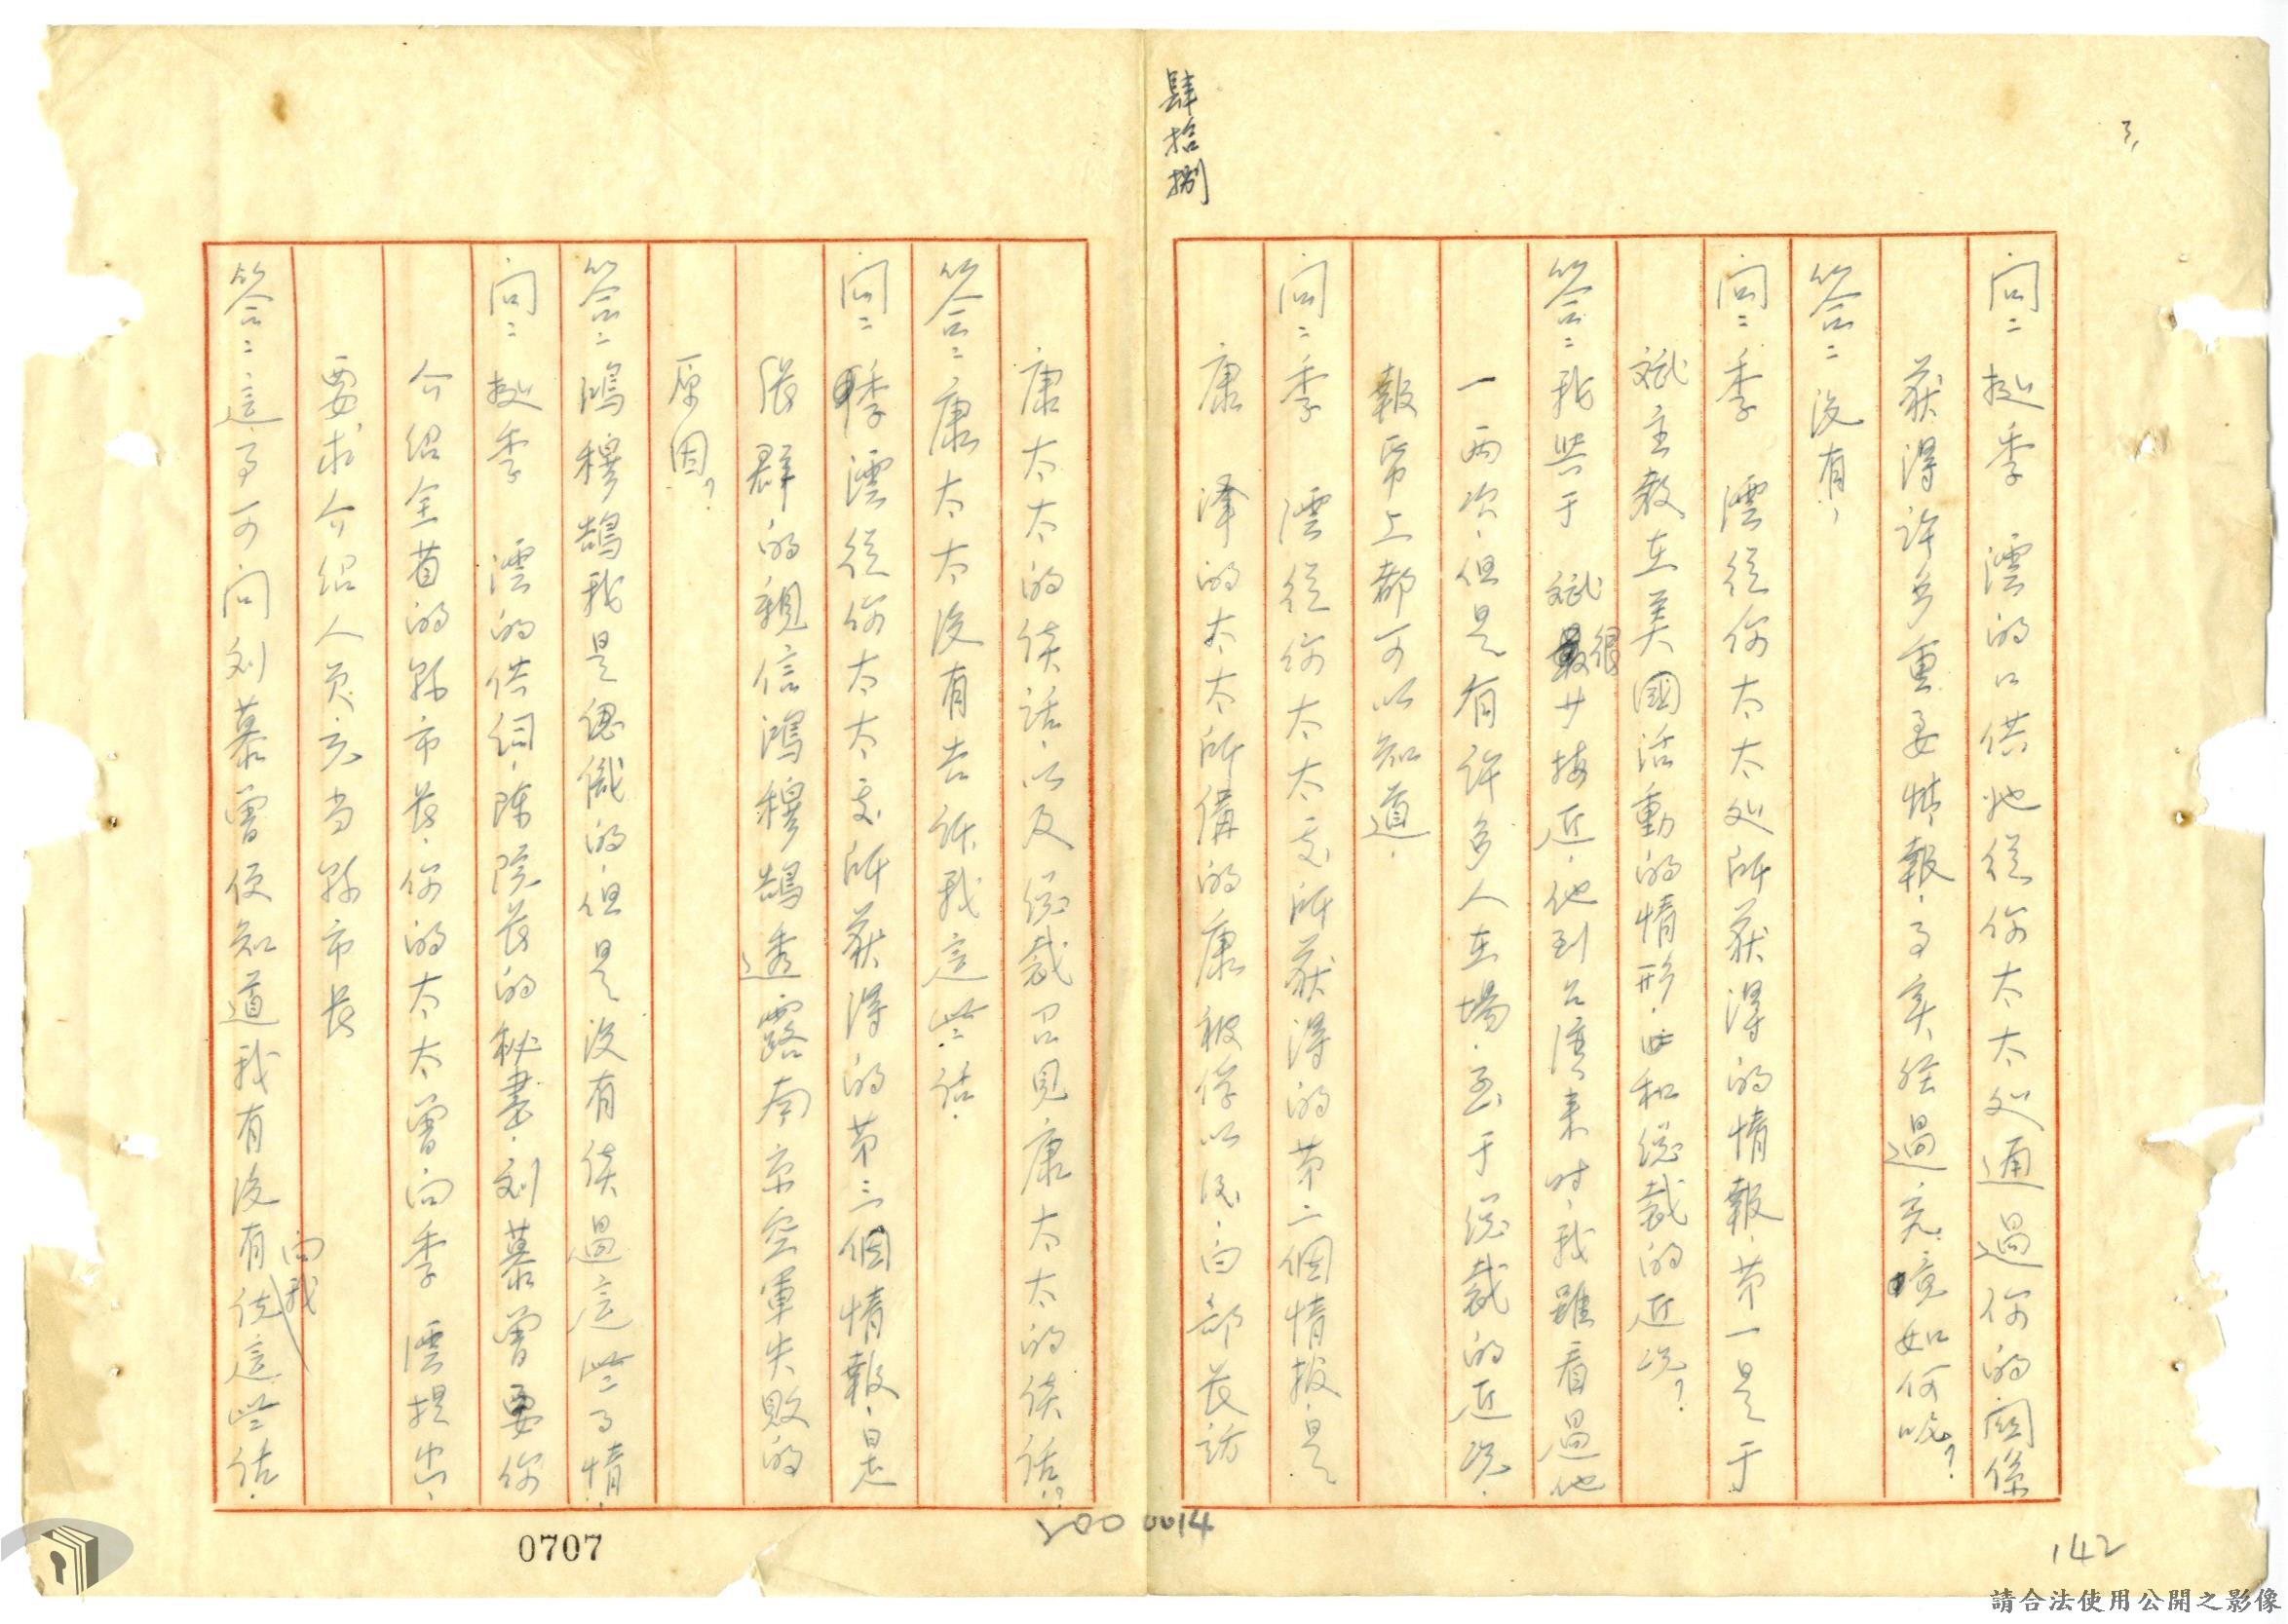 3,
肆拾捌
問：据季　澐的口供她從你太太処通過你的関係
获得许多重要情報，事实経過究竟如何呢？
答：没有，
問：季　澐從你太太処所获得的情報，第一是于
斌主教在美國活動的情形，和総裁的近况？
答：我與于　斌很少接近，他到台湾来时，我雖看過他
一两次，但是有许多人在場，至于総裁的近况，
報帋上都可以知道．
問：季　澐從你太太処所获得的第二個情报，是
康　泽的太太所講的康被俘以后，白部长訪
康太太的談話，以及総裁召見康太太的談話？
答：康太太没有告訴我這些話．
問：季澐從你太太処所获得的第三個情報，是
張群的親信鴻穆鵠透露南京空軍失败的
原因？
答：鴻穆鵠我是認識的，但是没有談過這些事情．
問：据季　澐的供词，陳院长的秘書，刘慕曾要你
介绍全省的縣市长，你的太太曾向季　澐提出，
要求介绍人员充当縣市长
答：這事可问刘慕曾便知道我有没有向我談這些話．
500 0014
0707
142
請合法使用公開之影像